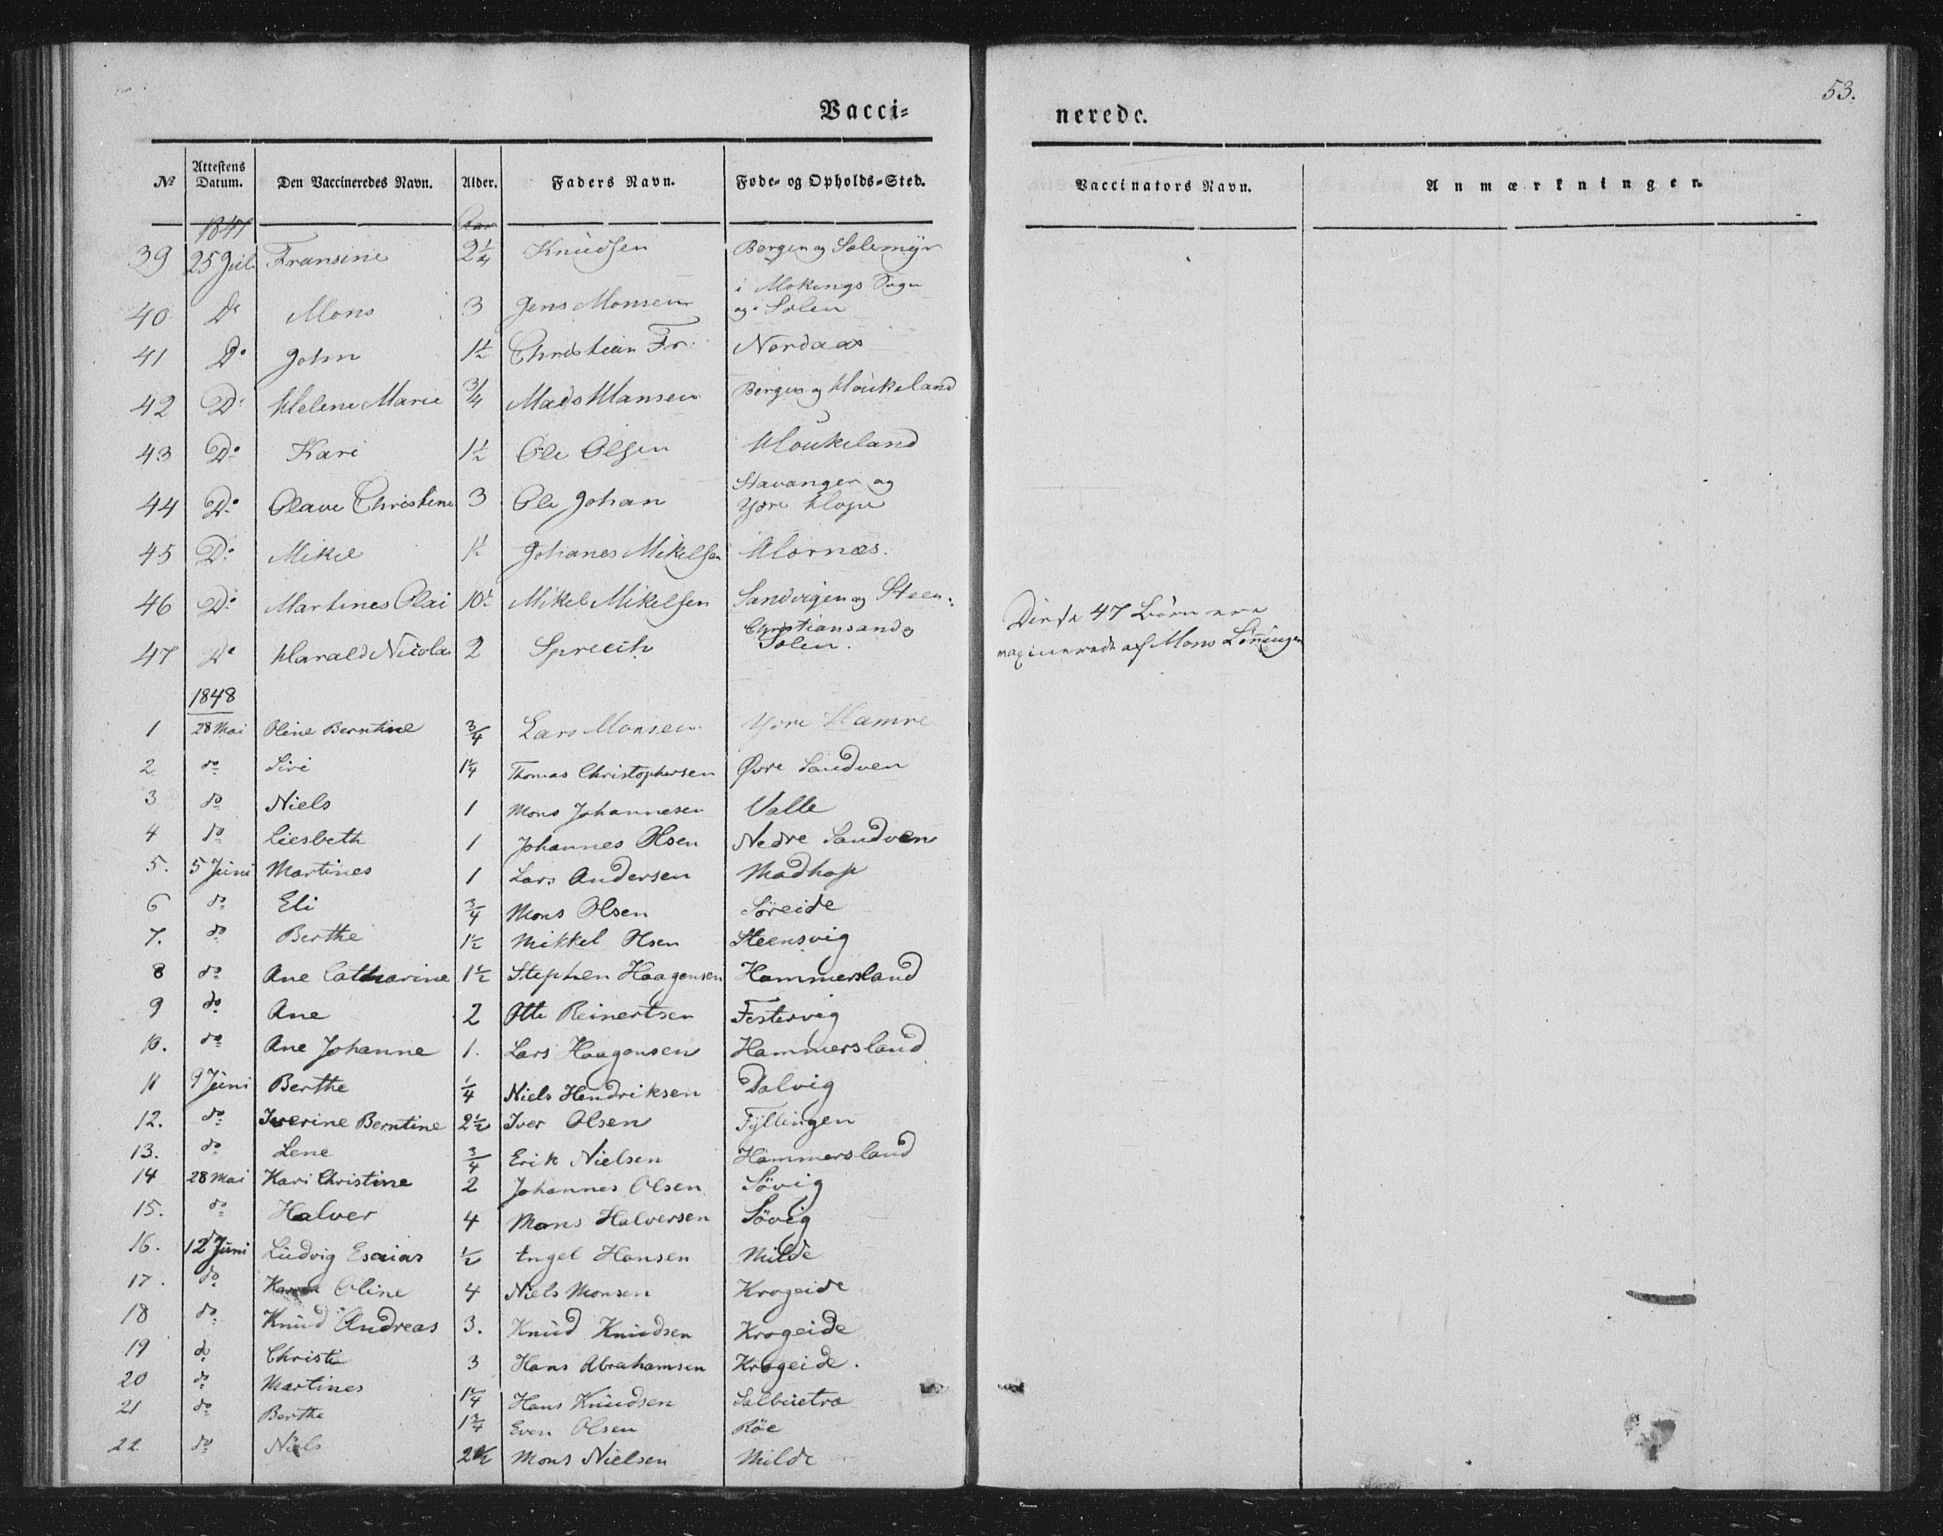 53.
Vacci= nerede.
No Attestens Datum. Den Vaccineredes Navn. Alder. Faders Navn. Føde- og Opholds-Sted. Vaccinators Navn. Anmærkninger.
1847 Aar
39 25 Jul Fransine 2 1/4 Knudsen Bergen og Solemyr
40 Do Mons 3 Jens Monsen i Mokings Sogn og i Solen
41 Do John 1 1/2 Christian Fr. Nordaas
42 Do Helene Marie 3/4 Mads Hansen Bergen og Houkeland
43 Do Kari 1 1/2 Ole Olsen Houkeland
44 Do Olave Christine 3 Ole Johan Stavanger og Yore Hope
45 Do Mikel 1 1/2 Johanes Mikelsen Hornæs.
46 Do Martines Olai 10 1/2 Mikel Mikelsen Sandvigen og Steen
47 Do Harald Nicola 2 Spreeih Christiansand og Solen.
Disse 47 Børn ere
vaxinerede af Mons Løningen
1848
1 28 Mai Oline Berntine 3/4 Lars Monsen Yore Hamre
2 do Siri 1 1/4 Thomas Christophersen Øvre Sandven
3 do Niels 1 Mons Johannesen Valle
4 do Liesbeth 1 Johannes Olsen Nedre Sandven
5. 5 Juni Martines 1 Lars Andersen Madhop
6 do Eli 3/4 Mons Olsen Søreide
7. do Berthe 1 1/2 Mikkel Olsen Steensvig
8 do Ane Catharine 1 1/2 Stephen Haagensen Hammersland
9 do Ane 2 Otte Reinertsen Festervig
10. do Ane Johanne 1. Lars Haagensen Hammersland
11 9 Juni Berthe 1/4 Niels Hendriksen Dalvig
12. do Iverine Berntine 2 1/2 Iver Olsen Fyllingen
13. do Lene 3/4 Erik Nielsen Hammersland
14 28 Mai Kari Christine 2 Johannes Olsen Søvig
15. do Halver 4 Mons Halversen Søvig
16. 12 Juni Ludvig Esaias 1/2 Engel Hansen Milde
17. do Oline 4 Niels Monsen Krogeide
18 do Knud Andreas 3. Knud Knudsen Krogeide
19 do Christi 3 Hans Abrahamsen Krogeide.
20 do Martines 1 1/4 Hans Knudsen Salbuetra
21 do Berthe 1 3/4 Even Olsen Røe
22 do Niels 2 1/2 Mons Nielsen Milde